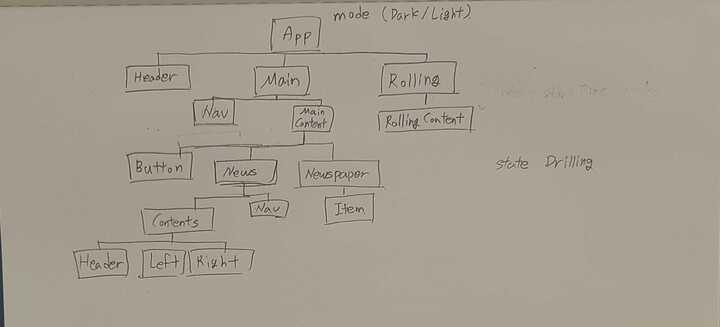 mode (Dark/Light)
App
Header
Main
Rolling
Nav
Main
Content
Rolling Content
Button
News
Newspaper
state Drilling
Contents
Nav
Item
Header
Left
Right